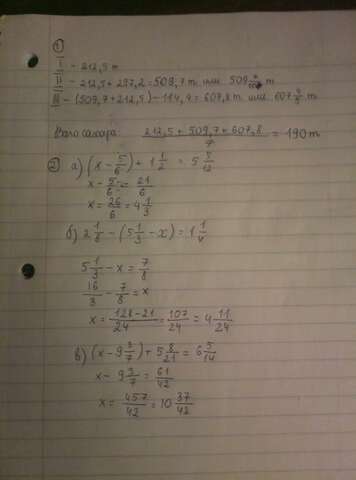 1
I - 212,5 т
II - 212,5 + 297,2 = 509,7 т или 509 7/10 т
III - (509,7 + 212,5) - 114,4 = 607,8 т или 607 4/5 т
Всего сахара (212,5 + 509,7 + 607,8)/7 = 190 т
2 а) (x - 5/6) + 1 1/2 = 5 5/12
x - 5/6 = 21/6
x = 26/6 = 4 1/3
б) 2 1/8 - (5 1/3 - x) = 1 1/4
5 1/3 - x = 7/8
16/3 - 7/8 = x
x = (128-21)/24 = 107/24 = 4 11/24
в) (x - 9 3/7) + 5 8/21 = 6 5/14
x - 9 3/7 = 61/42
x = 457/42 = 10 37/42